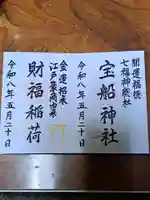 開運福徳
七福神総社
宝船神社
令和八年五月二十日
金運招来
江戸豪商由来
財福稲荷
令和八年五月二十日